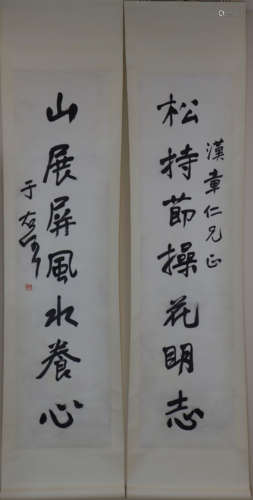 松持節操花明志
漢章仁兄正
山展屏風水養心
于右任